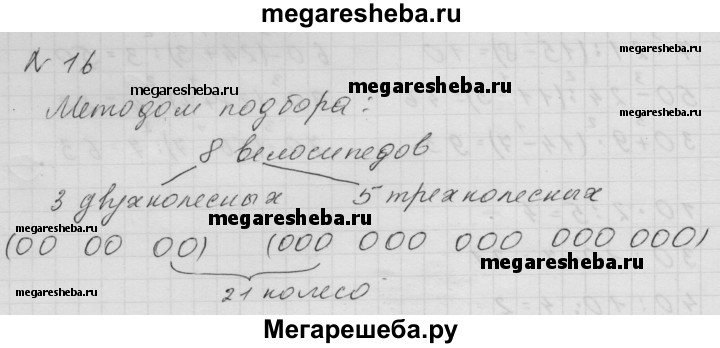 megaresheba.ru
№ 16
megaresheba.ru
megaresheba.ru
Методом подбора:
8 велосипедов
3 двухколесных 5 трехколесных
megaresheba.ru
(00 00 00) (000 000 000 000 000)
megaresheba.ru
megaresheba.ru
21 колесо
Мегарешеба.ру